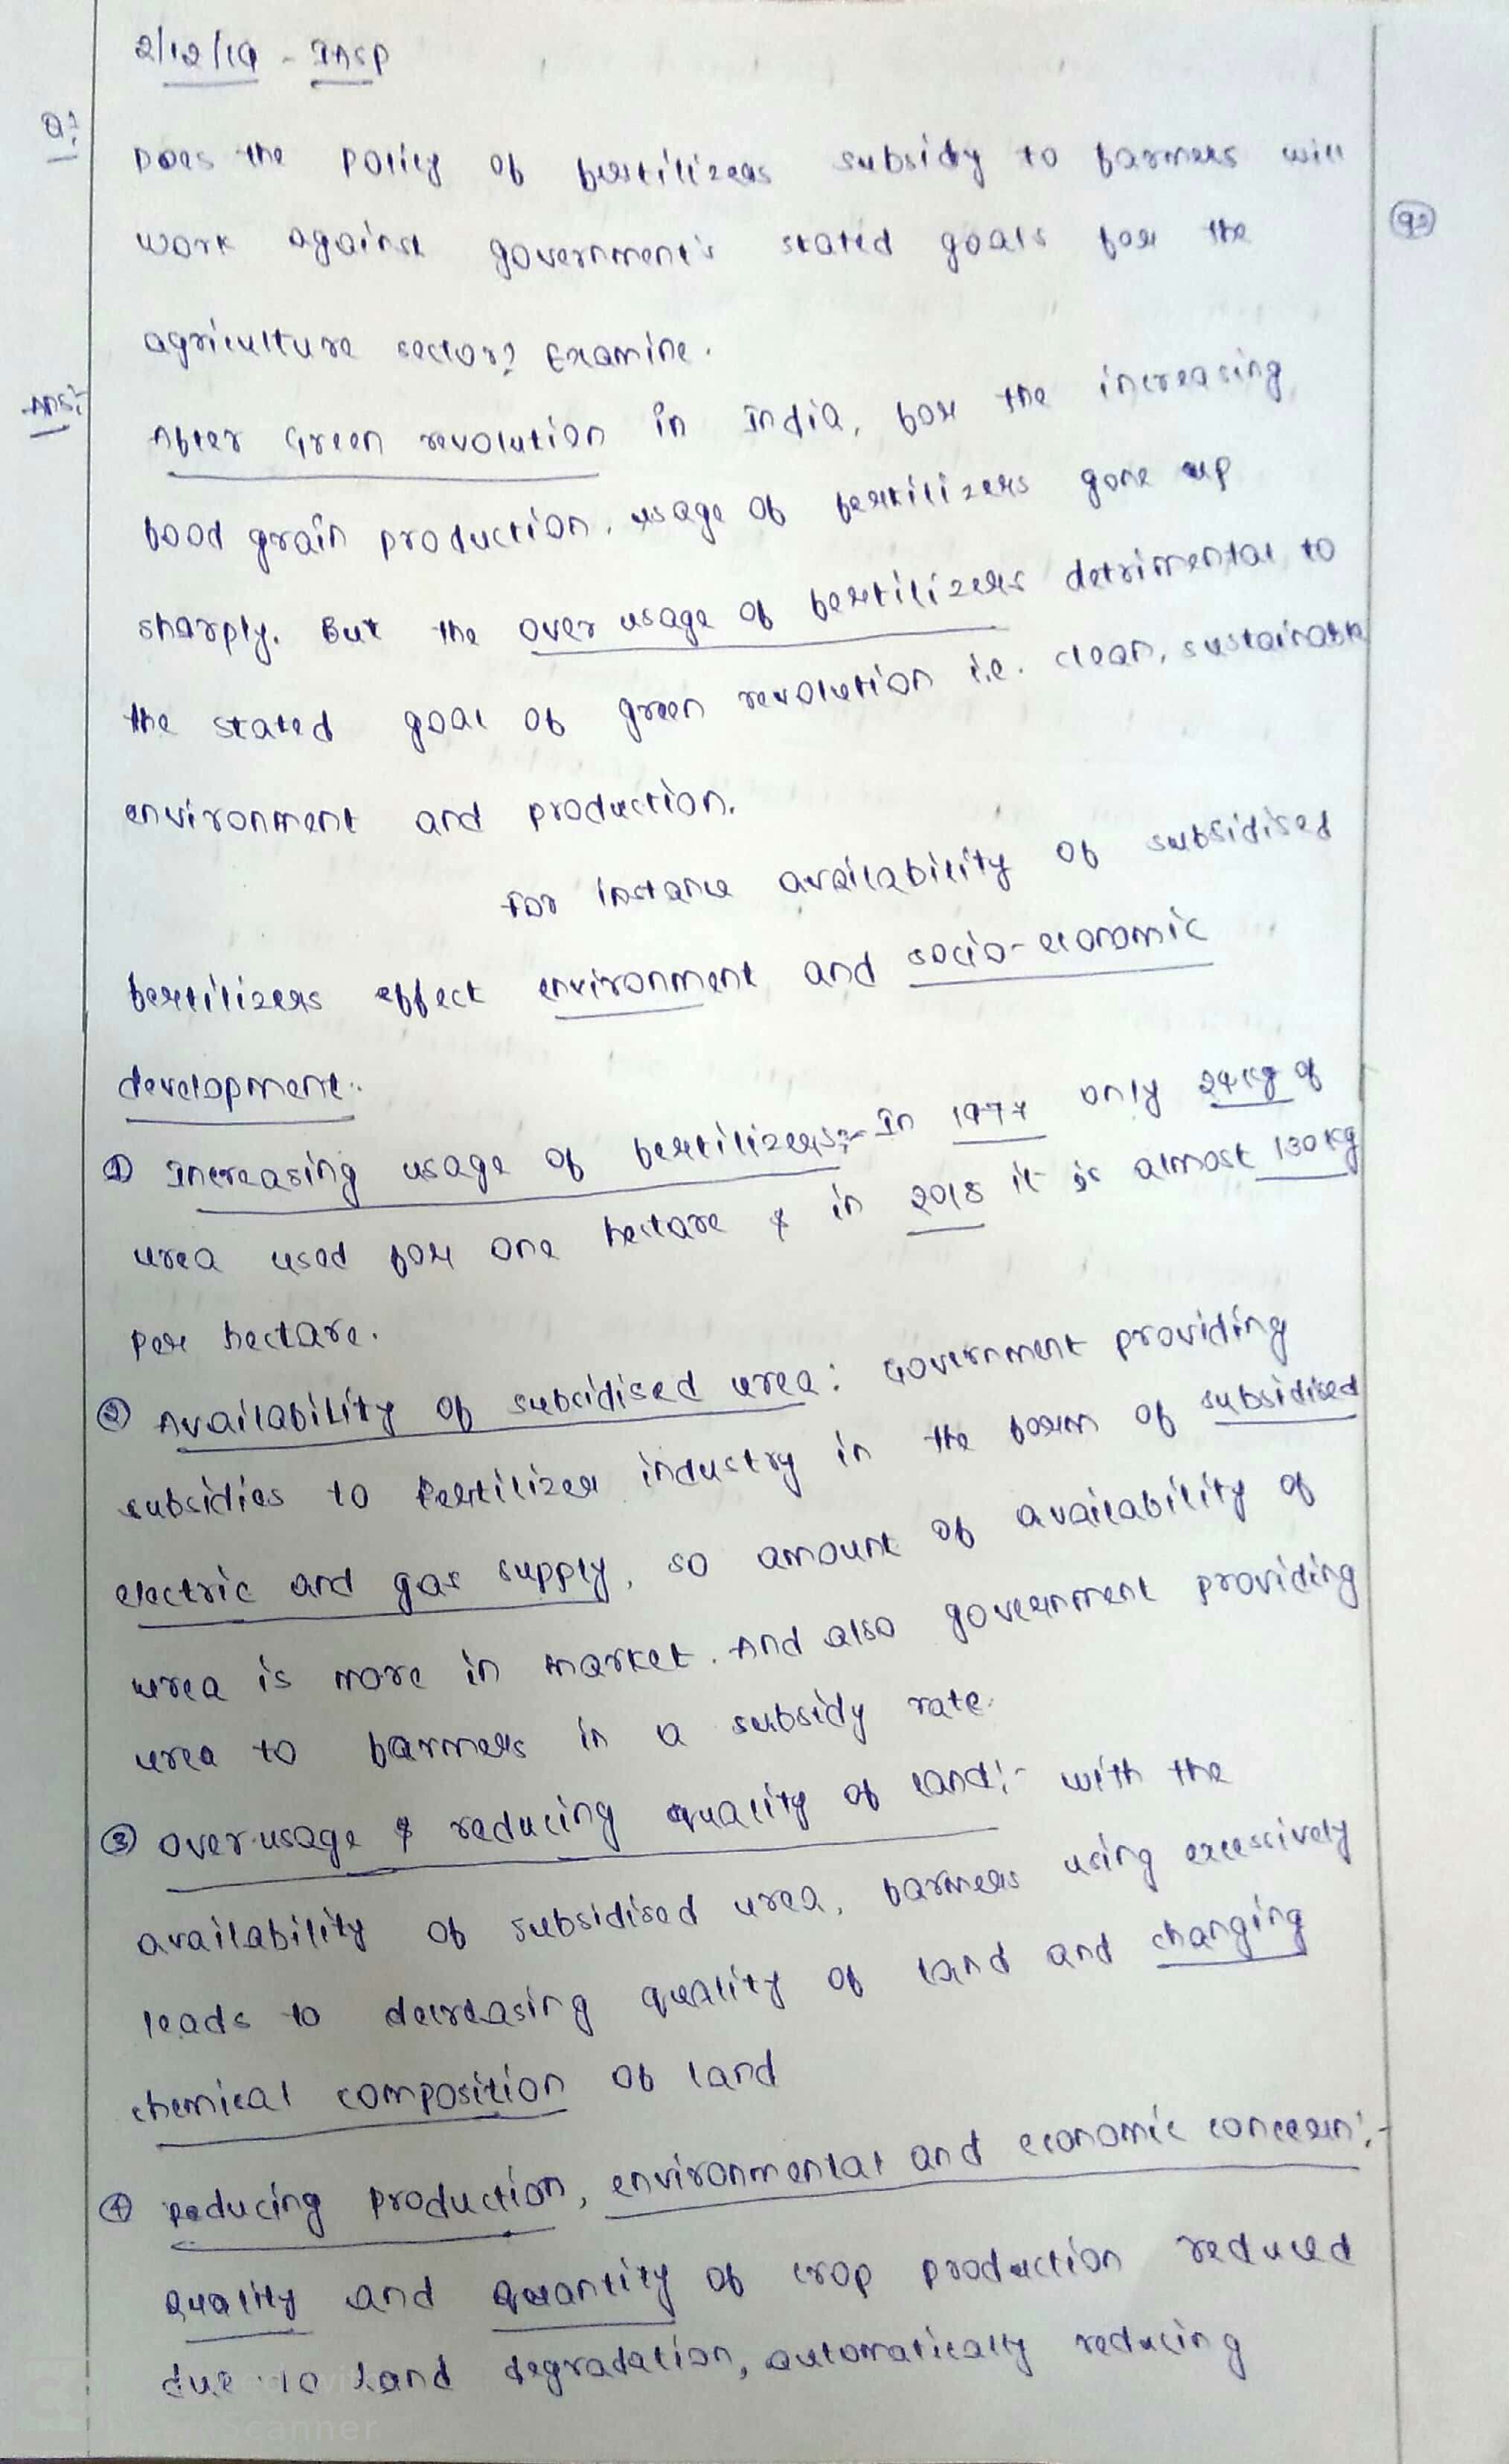 2/12/19 - INSP
Q:
Does the policy of fertilizers subsidy to farmers will
work against government's stated goals for the
agriculture sector? Examine.
Ans:-
After Green revolution in India, for the increasing
food grain production, usage of fertilizers gone up
sharply. But the over usage of fertilizers detrimental to
the stated goal of green revolution i.e. clean, sustainable
environment and production.
For instance availability of subsidised
fertilizers effect environment and socio-economic
development.
① Increasing usage of fertilizers:- In 1977 only 24kg of
urea used for one hectare & in 2018 it is almost 130 kg
per hectare.
② Availability of subsidised urea: Government providing
subsidies to fertilizer industry in the form of subsidised
electric and gas supply, so amount of availability of
urea is more in market. And also government providing
urea to farmers in a subsidy rate.
③ over-usage & reducing quality of land:- with the
availability of subsidised urea, farmers using excessively
leads to decreasing quality of land and changing
chemical composition of land
④ Reducing production, environmental and economic concern:-
Quality and quantity of crop production reduced
due to land degradation, automatically reducing
Scanner